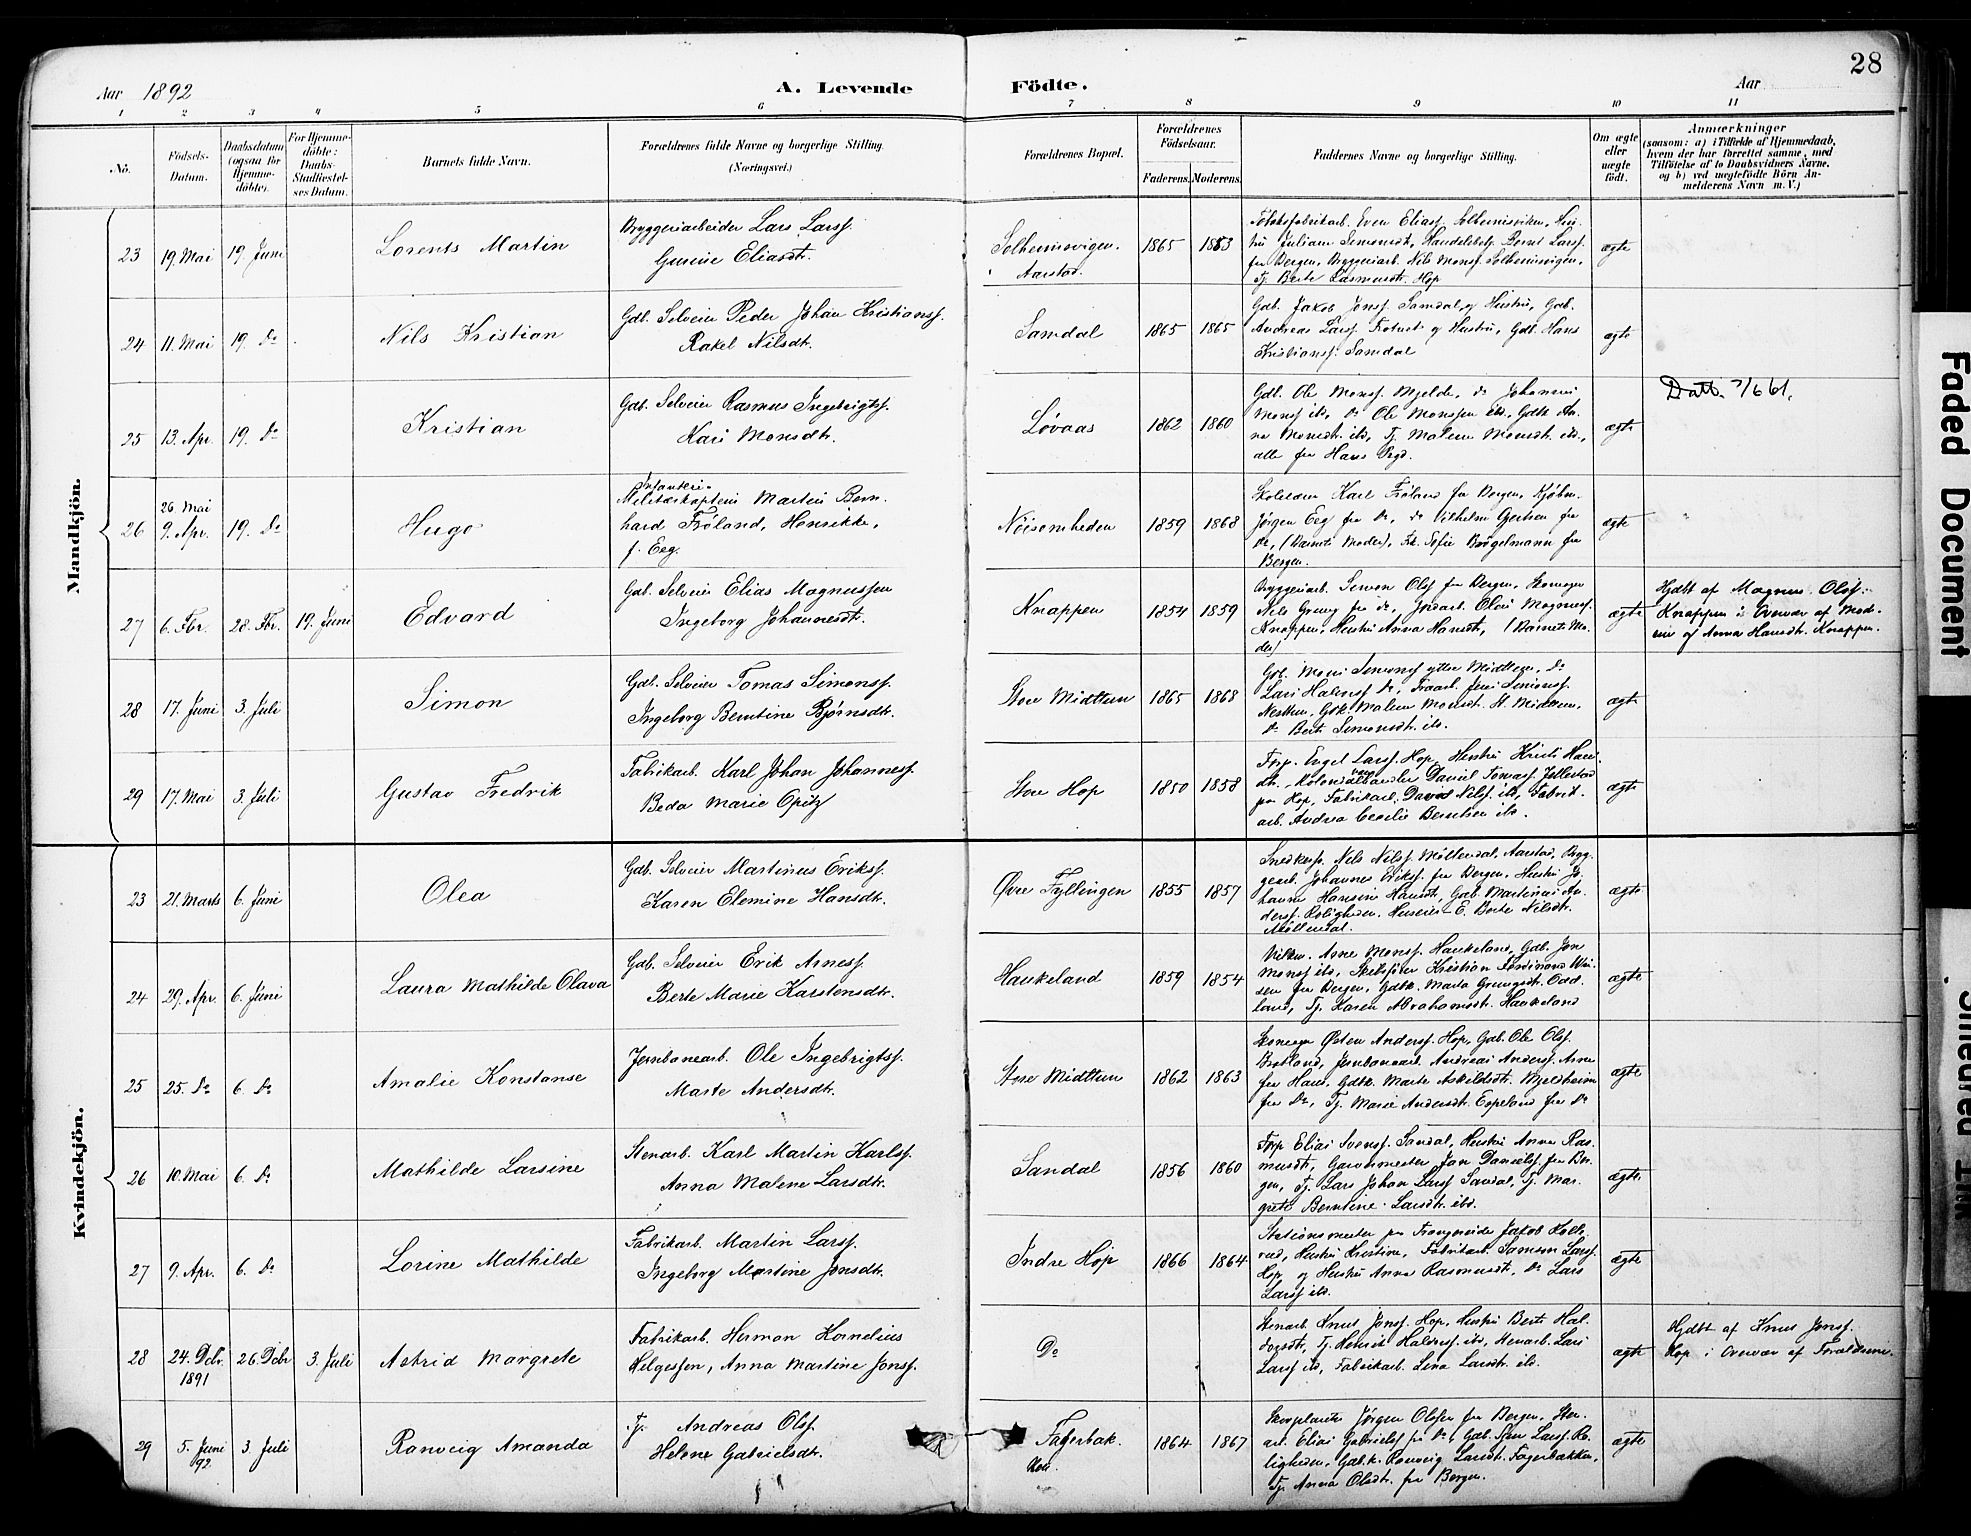 28
Aar 1892
A. Levende Födte.
Aar
1 2 3 4 5 6 7 8 9 10 11
No.
Födsels-Datum.
Daabsdatum (ogsaa for Hjemme-döbte).
For Hjemme-döbte: Daabs-Stadfæstel-ses Datum.
Barnets fulde Navn.
Forældrenes fulde Navne og borgerlige Stilling.
(Næringsvei.)
Forældrenes Bopæl.
Forældrenes Födselsaar.
Faderens. Moderens.
Faddernes Navne og borgerlige Stilling.
Om ægte eller uægte födt.
Anmærkninger
(saasom: a) i Tilfælde af Hjemmedaab,
hvem der har forrettet samme, med
Tilföielse af to Daabsvidners Navne,
og b) ved uægtefödte Börn An-
melderens Navn m. V.)
Mandkjön.
23 19. Mai 19. Juni Lorents Martin
Bryggeriarbeider Lars Larss.
Gurine Eliasdt.
Solheimsvigen. Aarstad. 1865 1863
Fotøsfabrikarb. Sven Eliass. Solheimsviken, Hu-
stru Juliane Simonsdt, Handelsbetj. Bernt Larss.
fra Bergen, Bryggeriarb. Nils Monss. Solheimsvigen,
Tj. Berte Rasmusdt. Hop
ægte
24 11. Mai 19. Do Nils Kristian
Gdb. Selveier Peder Johan Kristianss.
Rakel Nilsdt.
Samdal 1865 1865
Gdb. Jakob Jonss. Samdal og Hustru, Gdb.
Andreas Larss. Totset og Hustru, Gdb. Hans
Kristianss. Samdal
ægte
25 13. Apr. 19. Do Kristian
Gdb. Selveier Rasmus Ingebrigtss.
Kari Monsdt.
Løvaas 1862 1860
Gdb. Ole Monss. Mjelde, Do Johannes
Monss ibd, Do Ole Monssen ibd, Gdbk An-
na Monsdt. ibd, Tj. Malene Monsdt. ibd,
alle fra Haus Prgd.
ægte
Datt. 7/6 61,
26 26. Mai 9. Apr. 19. Do Hugo
Infanteri-
Militærkaptein Martin Bern-
hard Frøland, Henrikke,
f. Eeg.
Nøisomheden 1859 1868
Skolelærer Karl Frøland fra Bergen, Kjøbm.
Jørgen Eeg fra Do, Do Vilhelm Gjertsen fra
Do, (Barnets Moder), Frk. Sofie Børgelmann fra
Bergen.
ægte
27 6. Fbr. 28. Fbr. 19. Juni Edvard
Gdb. Selveier Elias Magnussen
Ingeborg Johannesdt.
Knappen 1854 1859
Bryggeriarb. Simon Olss fra Bergen, Skomager
Nils Grung fra Do, Jordarb. Olai Magnuss.
Knappen, Hustru Anna Hansdt, (Barnets Mo-
der)
ægte
Hjdbt af Magnus Olss.
Knappen i Overvær af Mod-
eren og Anna Hansdt. Knappen.
28 17. Juni 3. Juli Simon
Gdb. Selveier Tomas Simonss.
Ingeborg Berntine Bjørnsdt.
Store Midttun 1865 1868
Gdb. Mons Simonss ytre Midttun, Do
Lars Halvorss Do, Fraarb. Jens Simonss.
Nesttun, Gdbk. Malene Monsdt. St. Midttun,
Do Berte Simonsdt. ibd.
ægte
29 17. Mai 3. Juli Gustav Fredrik
Fabrikarb. Karl Johan Johanness.
Beda Marie Opitz
Store Hop 1850 1858
Forp. Engel Larss. Hop, Hustru Kristi Hans-
dt. Kolonialhandler Daniel Tomass. Jellestad
paa Hop, Fabrikarb. David Nilss. ibd, Fabrik-
arb. Andrea Cecilie Berntsen ibd.
ægte
Kvindekjön.
23 21. Marts 6. Juni Olea
Gdb. Selveier Martinus Erikss.
Karen Elemine Hansdt.
Øvre Fyllingen 1855 1857
Snedkersv. Nils Nilss. Møllendal, Aarstad, Bryg-
geriarb. Johannes Erikss. fra Bergen, Hustru Jo-
hanne Hansine Hansdt, Gdb. Martinus An-
derss. Roligheden, Huseier-E. Berte Nilsdt.
Møllendal.
ægte
24 29. Apr. 6. Juni Laura Mathilde Olava
Gdb. Selveier Erik Arness.
Berte Marie Karstensdt.
Haukeland 1859 1854
Urtkr. Arne Monss. Haukeland, Gdb. Jon
Monss ibd, Skibsfører Kristian Ferdinand Wii-
sen fra Bergen, Gdbk. Marta Grungsdt. Odd-
land, Tj. Karen Abrahamsdt. Haukeland
ægte
25 25. Do 6. Do Amalie Konstanse
Jernbanearb. Ole Ingebrigtss.
Marte Andersdt.
Store Midttun 1862 1863
Skomager Østen Anderss. Hop, Gdb. Ole Olss.
Bratland, Jernbanearb. Andreas Anderss. Arna
fra Haus, Gdbk. Marte Askildsdt. Mjeldheim
fra Do, Tj. Marie Andersdt. Espeland fra Do
ægte
26 10. Mai 6. Do Mathilde Larsine
Stenarb. Karl Martin Karlss.
Anna Malene Larsdt.
Sandal 1856 1860
Forp Elias Svenss. Sandal, Hustru Anna Ras-
musdt, Garvermester Jan Danielss. fra Ber-
gen, Tj. Lars Johan Larss Sandal, Tj. Mar-
grete Berntine Larsdt. ibd.
ægte
27 9. Apr. 6. Do Lorine Mathilde
Fabrikarb. Martin Larss.
Ingeborg Martine Jonsdt.
Indre Hop 1866 1864
Stationsmester paa Trengereide Jakob Holle-
rud, Hustru Kristine, Fabrikarb. Samson Larss.
Hop og Hustru Anna Rasmusdt, Do Lars
Larss ibd.
ægte
28 24. Dcbr. 1891 26. Dcbr 3. Juli Astrid Margrete
Fabrikarb. Herman Kornelius
Helgessen, Anna Martine Jonss.
Do
Stenarb. Knut Jonss. Hop, Hustru Berte Hal-
vorsdt, Tj. Henrik Halvorss ibd, Stenarb. Lars
Larss ibd, Fabrikarb. Lina Larsdt. ibd.
ægte
Hjdbt af Knut Jonss.
Hop i Overvær af Forældrene.
29 5. Juni 92. 3. Juli Ranveig Amanda
Tj. Andreas Olss.
Helene Gabrielsdt.
Fagerbak-
ken. 1864 1867
Skoplarb. Jørgen Olssen fra Bergen, Sten-
arb. Elias Gabrielss fra Do, Gdb. Sjur Larss. Ro-
ligheden, Gdbk. Ranveig Larsdt. Fagerbakken,
Tj. Anna Olsdt. fra Bergen.
ægte
Faded Document